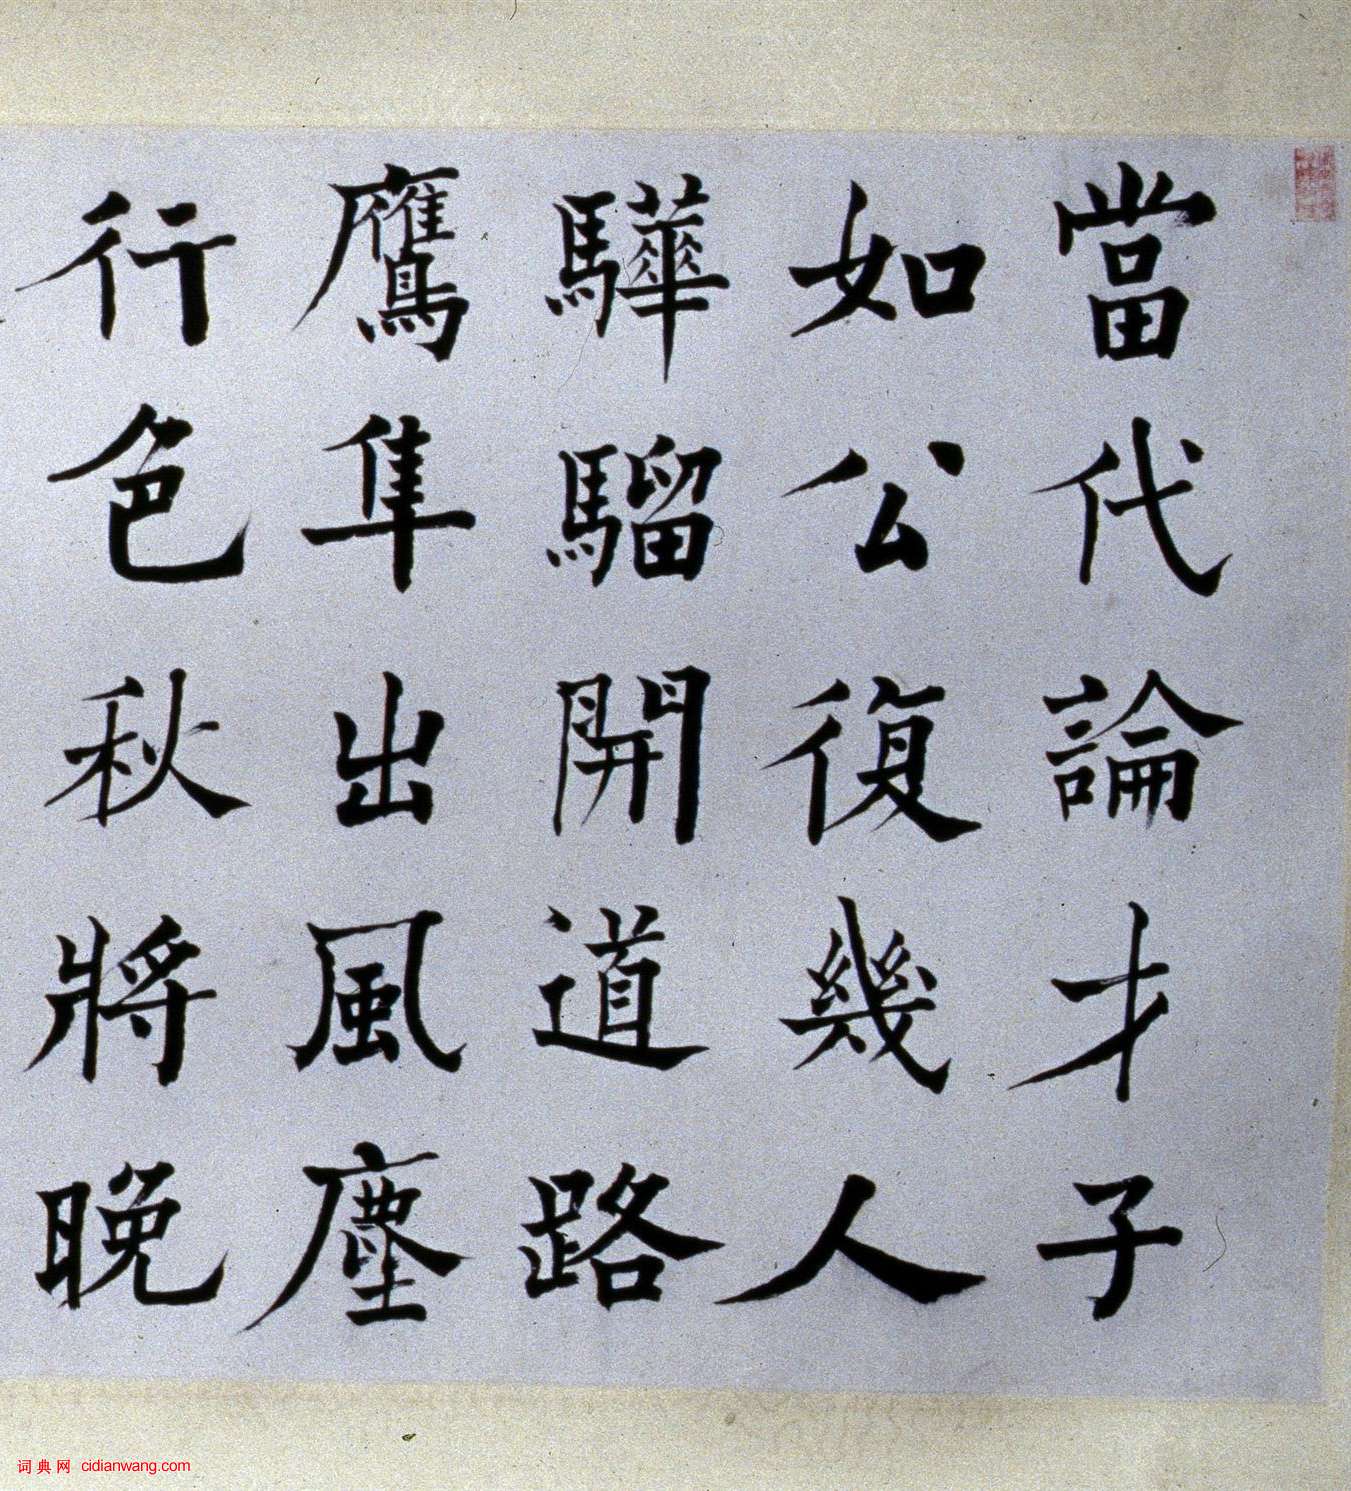 當代論才子
如公復幾人
驊騮開道路
鷹隼出風塵
行色秋將晚
词典网 cidianwang.com